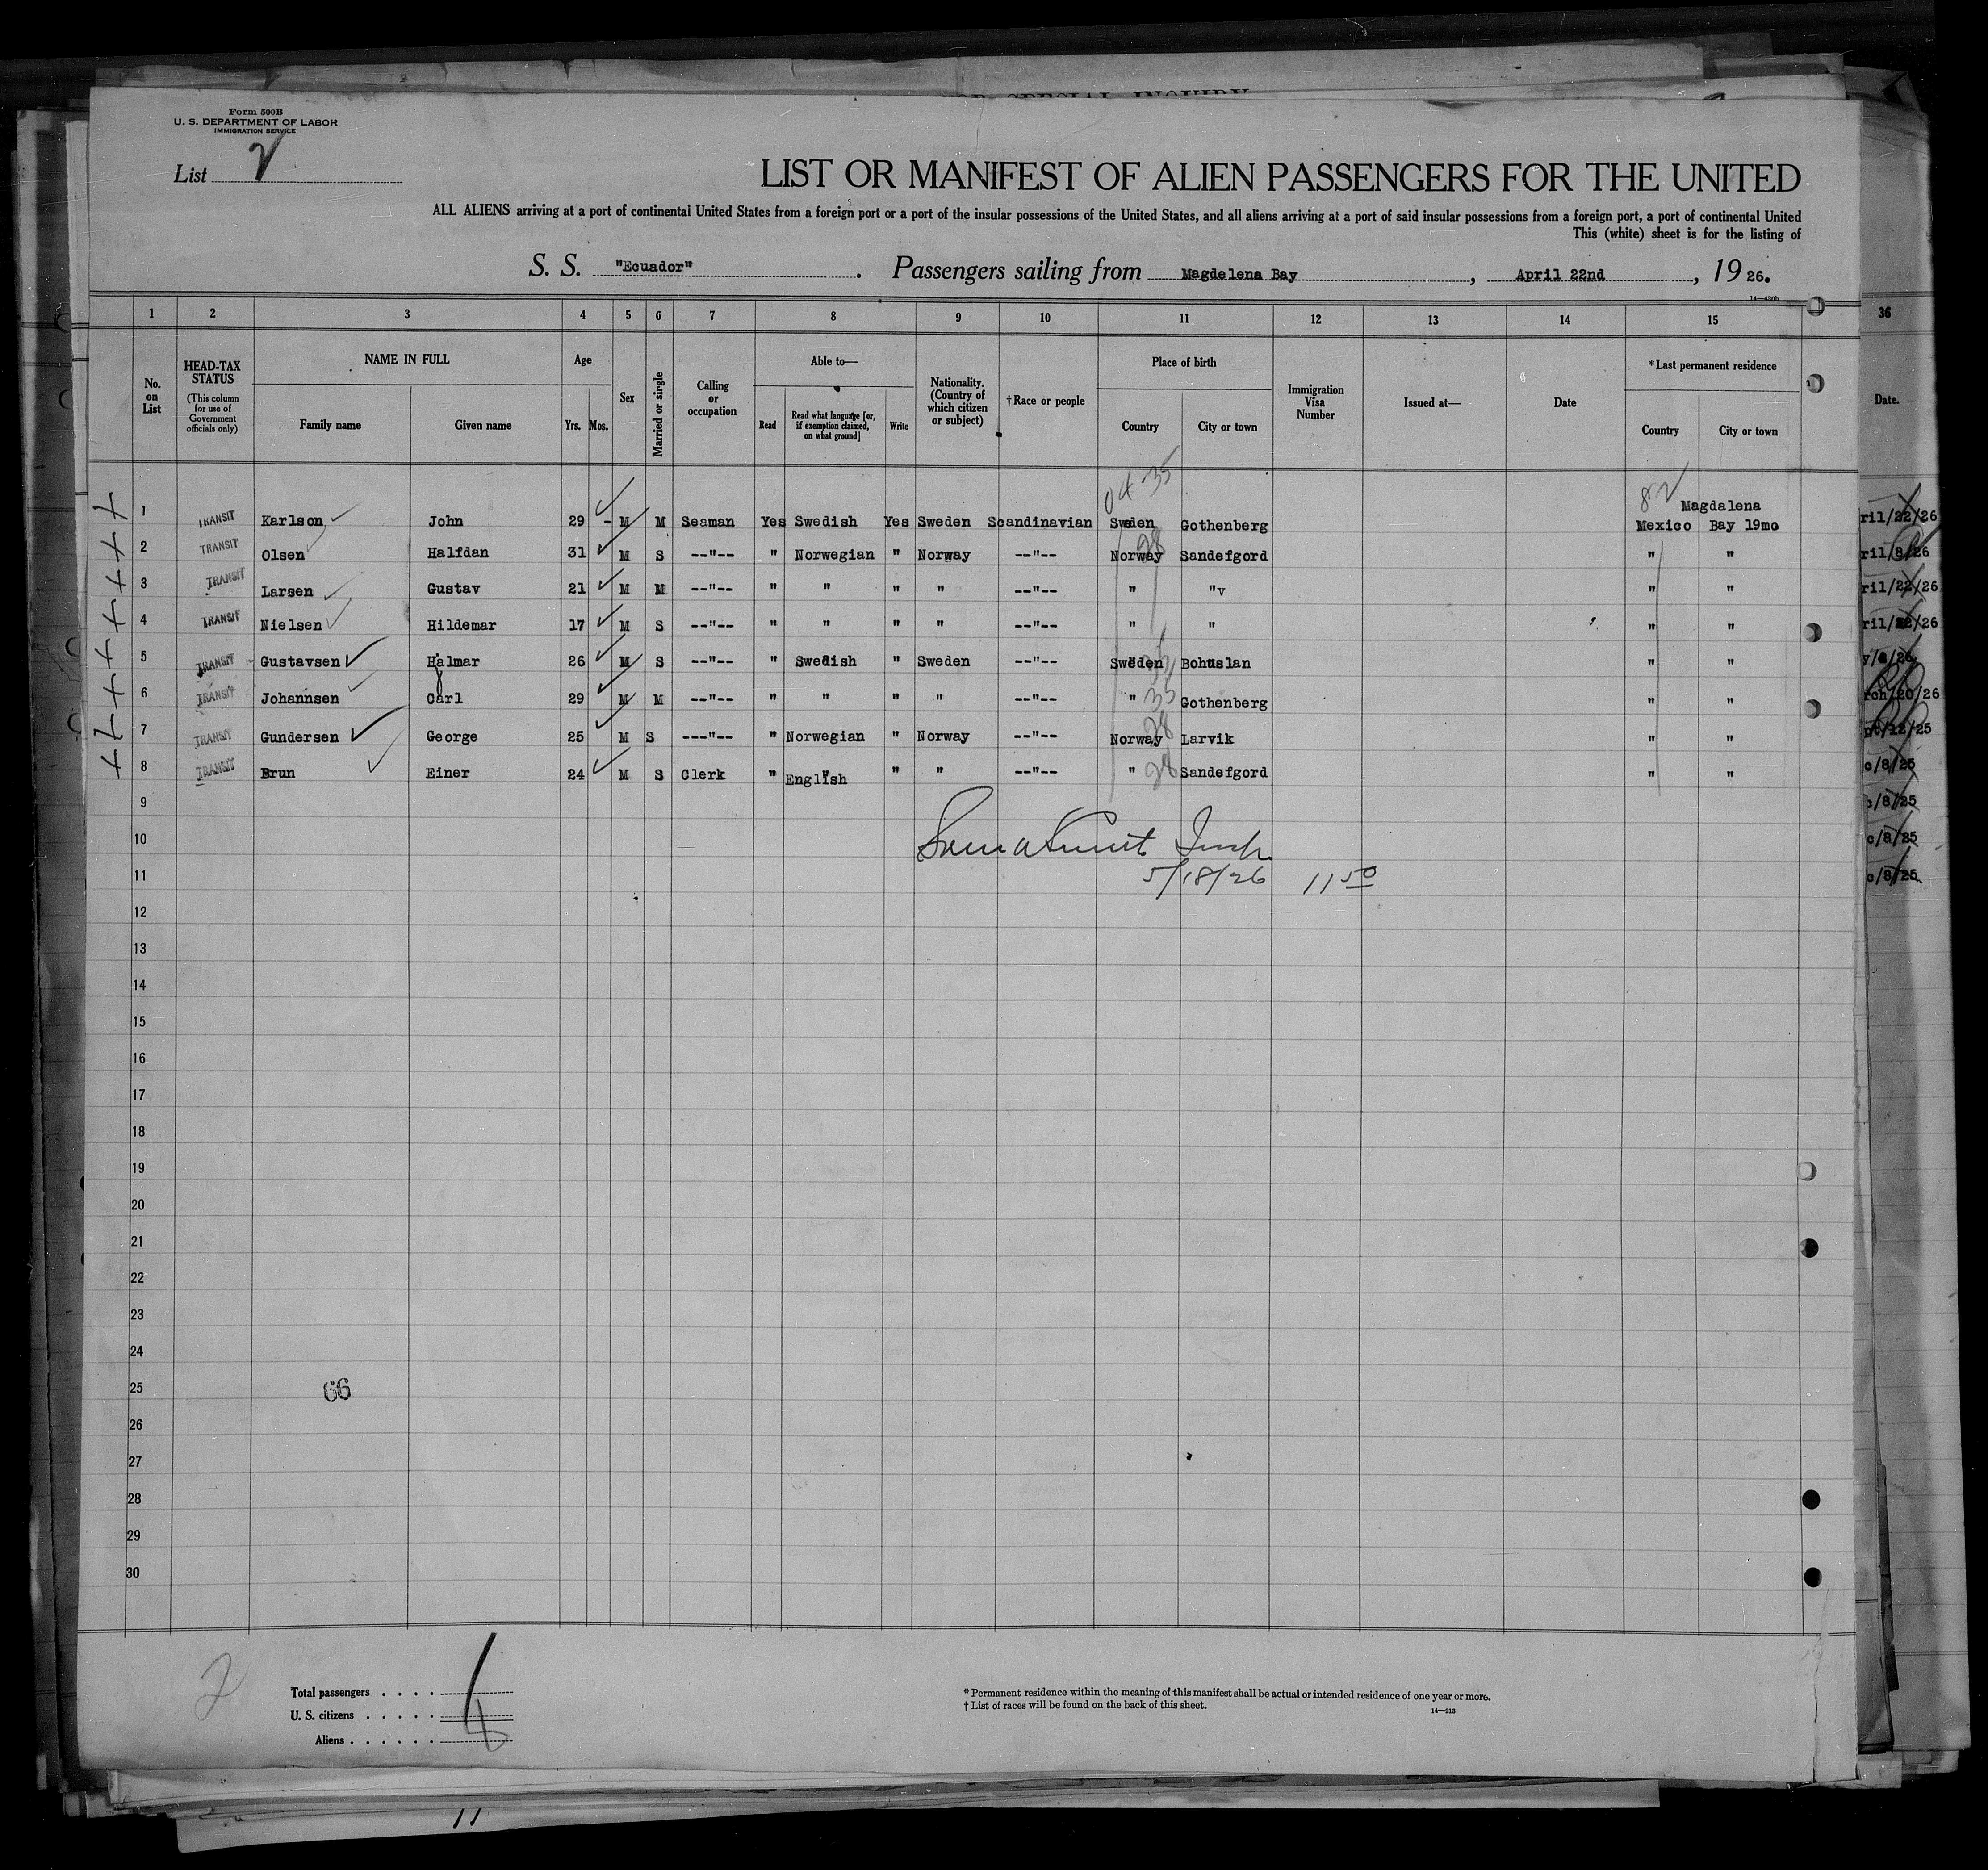 FOR SPECIAL INQUIRY
Form 500B
U. S. DEPARTMENT OF LABOR
IMMIGRATION SERVICE
List 2
LIST OR MANIFEST OF ALIEN PASSENGERS FOR THE UNITED
ALL ALIENS arriving at a port of continental United States from a foreign port or a port of the insular possessions of the United States, and all aliens arriving at a port of said insular possessions from a foreign port, a port of continental United
This (white) sheet is for the listing of
S. S. "Ecuador". Passengers sailing from Magdelena Bay, April 22nd, 1926.
1 2 3 4 5 6 7 8 9 10 11 12 13 14 15 36
No. on List
HEAD-TAX STATUS
(This column for use of Government officials only)
NAME IN FULL
Family name Given name
Age
Yrs. Mos.
Sex
Married or single
Calling or occupation
Able to—
Read
Read what language [or, if exemption claimed, on what ground]
Write
Nationality. (Country of which citizen or subject)
†Race or people
Place of birth
Country City or town
Immigration Visa Number
Issued at—
Date
*Last permanent residence
Country City or town
Date.
04 35
82 Magdalena
1 TRANSIT Karlson John 29 - M M Seaman Yes Swedish Yes Sweden Scandinavian Sweden Gothenberg Mexico Bay 19mo ril/22/26
2 TRANSIT Olsen Halfdan 31 M S --"-- " Norwegian " Norway --"-- Norway 28 Sandefgord " " ril/8/26
3 TRANSIT Larsen Gustav 21 M M --"-- " " " " --"-- " "v " " ril/22/26
4 TRANSIT Nielsen Hildemar 17 M S --"-- " " " " --"-- " " " " ril/22/26
5 TRANSIT Gustavsen Halmar 26 M S --"-- " Swedish " Sweden --"-- Sweden 35 Bohuslan " "
6 TRANSIT Johannsen Carl 29 M M --"-- " " " " --"-- " 35 Gothenberg " " rch/20/26
7 TRANSIT Gundersen George 25 M S ---"-- " Norwegian " Norway --"-- Norway 28 Larvik " " /12/25
8 TRANSIT Brun Einer 24 M S Clerk " English " " --"-- " 28 Sandefgord " " c/8/25
9 c/8/25
10 c/8/25
Insp
11 c/8/25
5/18/26 11 50
12
13
14
15
16
17
18
19
20
21
22
23
24
25 66
26
27
28
29
30
2
Total passengers . . . .
U. S. citizens . . . . .
Aliens . . . . . .
* Permanent residence within the meaning of this manifest shall be actual or intended residence of one year or more.
† List of races will be found on the back of this sheet.
14—213
11